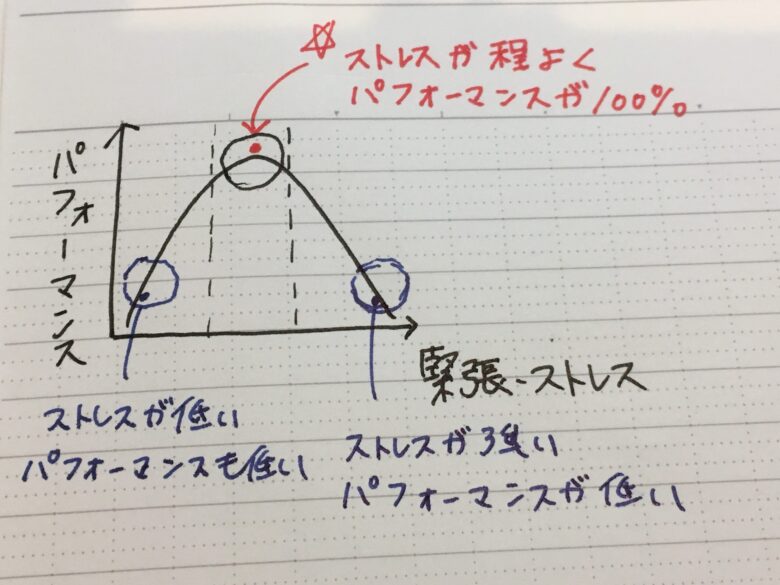 ストレスが程よく
パフォーマンスが100%。
パフォーマンス
緊張・ストレス
ストレスが低い
パフォーマンスも低い
ストレスが強い
パフォーマンスが低い